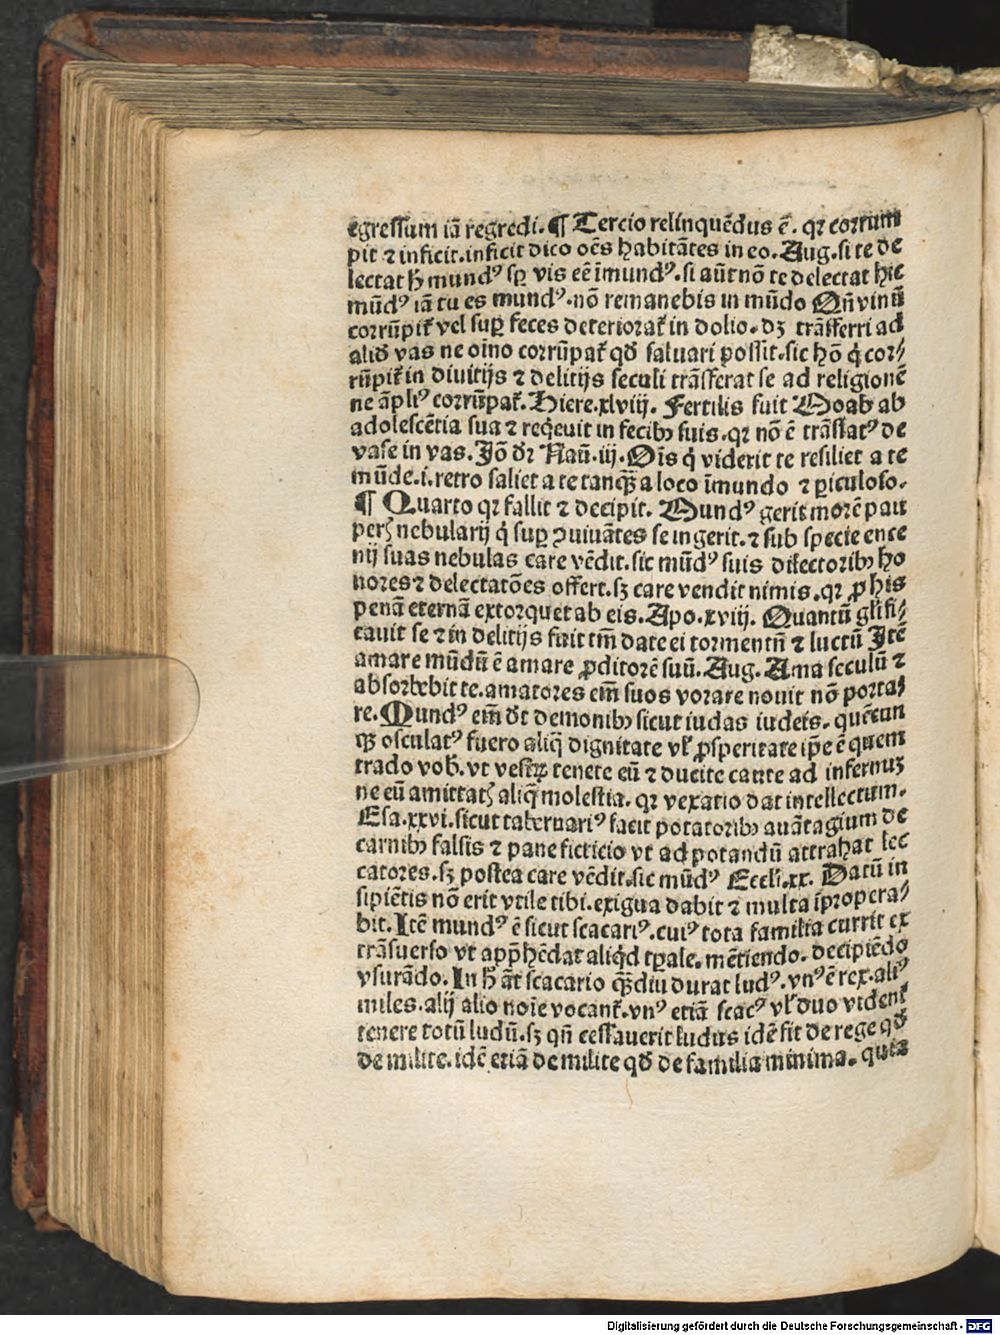 egressum iā regredi. ¶ Tercio relinquēdus ē. qꝛ corrum
pit ⁊ inficit. inficit dico oēs habitātes in eo. Aug. si te de
lectat hͦ mundꝰ sꝑ vis eē īmundꝰ. si aūt nō te delectat hic
mūdꝰ iā tu es mundꝰ. nō remanebis in mūdo Qn̄ vinū
corrūpit᷑ vel suꝑ feces deteriorat᷑ in dolio. dꝫ trāsferri ad
aliđ vas ne oīno corrūpat᷑ qđ saluari possit. sic hō q̇ cor⸗
rūpit᷑ in diuitijs ⁊ delitijs seculi trāsferat se ad religionē
ne āpliꝰ corrūpat᷑. Hiere. xlviij. Fertilis fuit Moab ab
adolescētia sua ⁊ req̇euit in fecibꝫ suis. qꝛ nō ē trāsfatꝰ de
vase in vas. Jō dꝛ Naū. iij. Oīs q̇ viderit te resiliet a te
mūde. i. retro saliet a te tanqꝫ̄ a loco īmundo ⁊ ꝑiculoso.
¶ Quarto qꝛ fallit ⁊ decipit. Mundꝰ gerit morē pau
peꝝ nebularij q̇ suꝑ ꝯuiuātes se ingerit. ⁊ sub specie ence
nij suas nebulas care vēdit. sic mūdꝰ suis dilectoribꝫ ho
nores ⁊ delectatōes offert. sꝫ care vendit nimis. qꝛ ꝓ his
penā eternā extorquet ab eis. Apo. xviij. Quantū gl̄ifi⸗
cauit se ⁊ in delitijs fuit tm̄ date ei tormentū ⁊ luctū Jtē
amare mūdū ē amare ꝓditorē suū. Aug. Ama seculū ⁊
absorbebit te. amatores em̄ suos vorare nouit nō porta⸗
re. Mundꝰ em̄ dt̄ demonibꝫ sicut iudas iudeis. quēcun
qꝫ osculatꝰ fuero aliq̄ dignitate vl̓ ꝓsperitate ip̄e ē quem
trado vob̄. vt vestꝝ tenete eū ⁊ ducite caute ad infernuꝫ
ne eū amittatꝭ aliq̄ molestia. qꝛ vexatio dat intellectum.
Esa. xxvi. sicut tabernariꝰ facit potatoribꝫ auātagium de
carnibꝫ falsis ⁊ pane ficticio vt ad potandū attrahat lec
catores. sꝫ postea care vēdit. sic mūdꝰ Eccli. xx. Datū in
sipiētis nō erit vtile tibi. exigua dabit ⁊ multa īpropera⸗
bit. Itē mundꝰ ē sicut scacariꝰ. cuiꝰ tota familia currit ex
trāsuerso vt app̄hēdat aliq̇d tꝑale. mētiendo. decipiēdo
vsurādo. In hͦ āt scacario qꝫ̄diu durat ludꝰ. vnꝰ ē rex. aliꝰ
miles. alij alio noīe vocant᷑. vnꝰ etiā scacꝰ vl̓ duo vident᷑
tenere totū ludū. sꝫ qn̄ cessauerit ludus idē fit de rege qđ
de milite. idē etiā de milite qđ de familia minima. quia
Digitalisierung gefördert durch die Deutsche Forschungsgemeinschaft - DFG